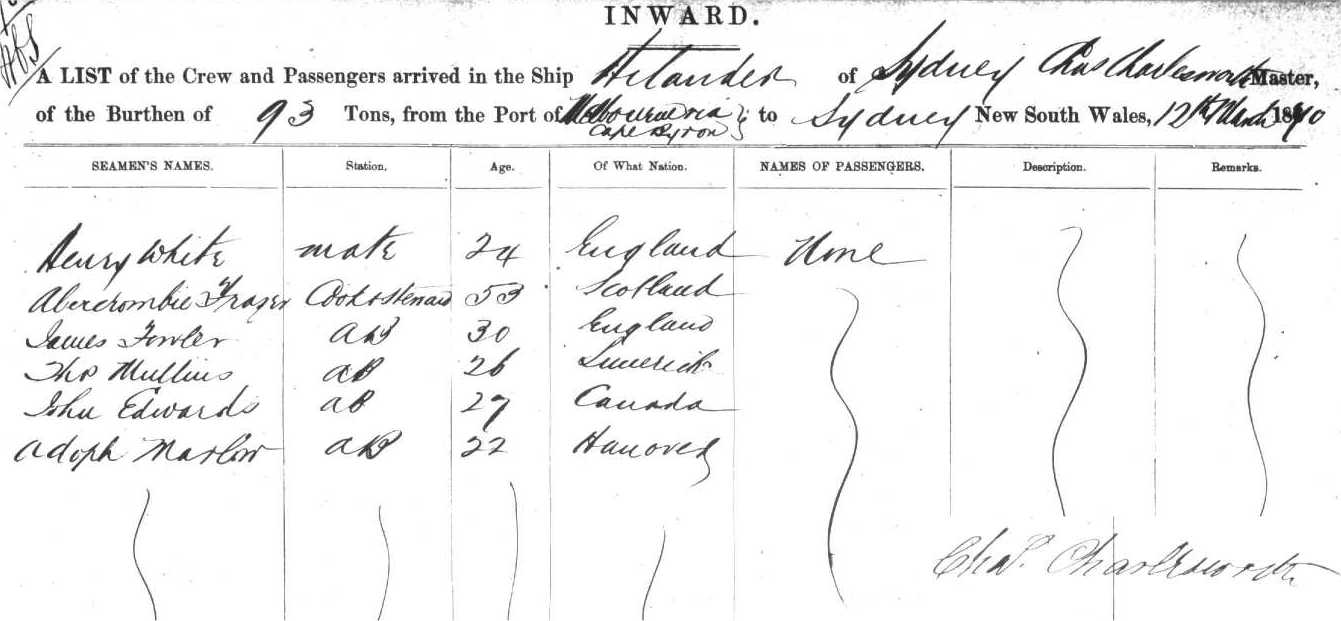 INWARD.
A LIST of the Crew and Passengers arrived in the Ship Hilander of Sydney Chas Charlesworth Master,
of the Burthen of 93 Tons, from the Port of Melbourne via Cape Byron to Sydney New South Wales, 12th March 1870
SEAMEN'S NAMES. Station. Age. Of What Nation. NAMES OF PASSENGERS. Description. Remarks.
Henry White mate 24 England None
Abercrombie Frazer Cook & Steward 53 Scotland
James Fowler AB 30 England
Thos Mullins AB 26 Limerick
John Edwards AB 27 Canada
Adoph Marlow AB 22 Hanover
Chas. Charlesworth